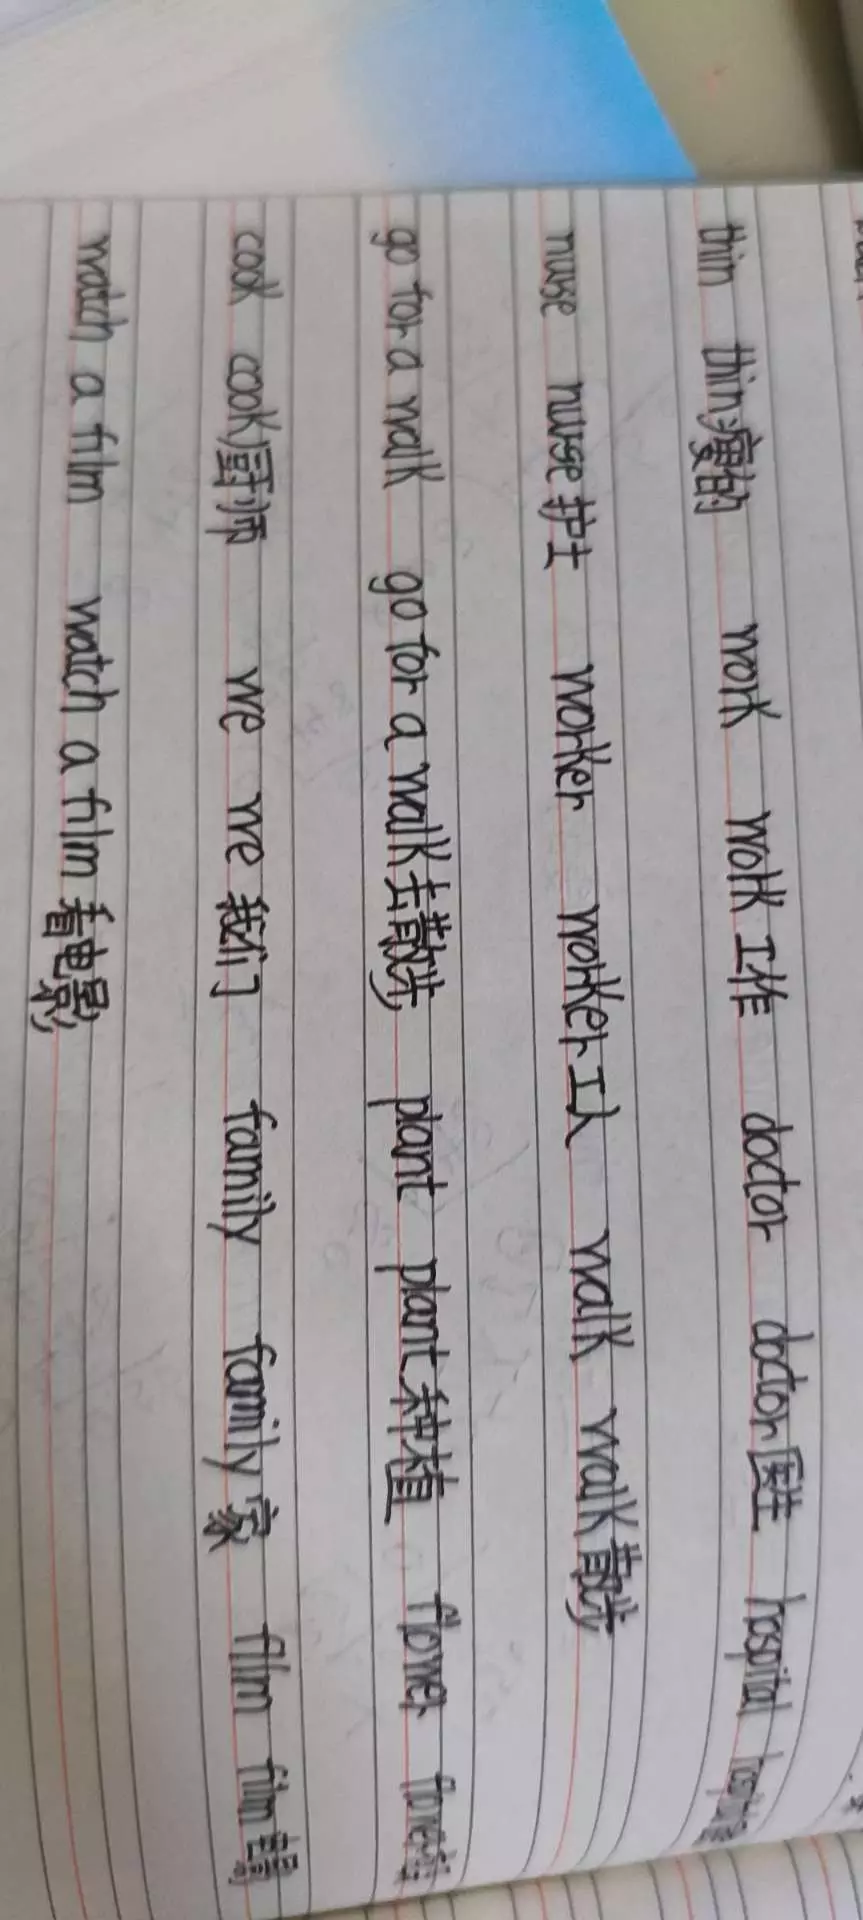 thin thin瘦的 work work工作 doctor doctor医生 hospital
nuse nurse护士 worker worker工人 walk walk散步
go for a walk go for a walk去散步 plant plant种植 flower flower
cook cook厨师 we we我们 family family家 film film
watch a film watch a film看电影